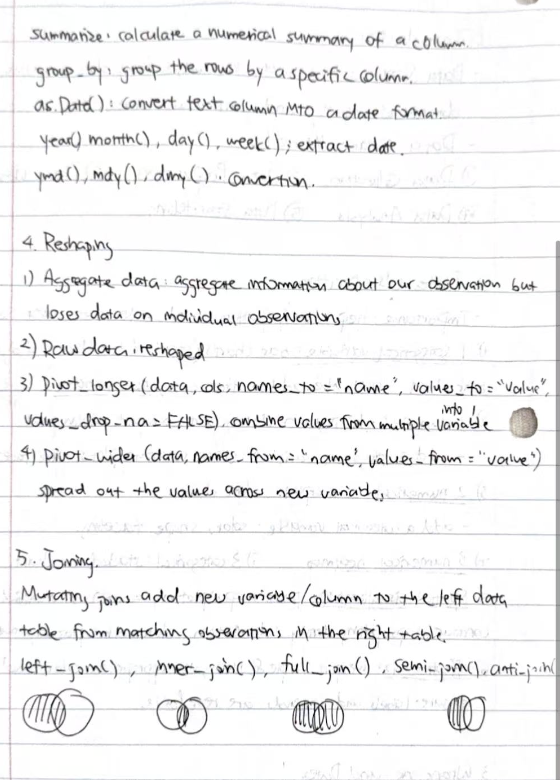 summarize: calculate a numerical summary of a column.
group_by: group the rows by a specific column.
as.Date(): convert text column into a date format
year() month(), day(), week(); extract date.
ymd(), mdy(), dmy(). convertion.
4. Reshaping
1) Aggregate data: aggregate information about our observation but
loses data on individual observations
2) Raw data: reshaped
3) Pivot_longer (data, cols, names_to = "name", values_to = "value",
values_drop_na = FALSE). combine values from multiple into 1 variable
4) pivot_wider (data, names_from = "name", values_from = "value")
spread out the values across new variables
5. Joining.
Mutating joins add new variable/column to the left data
table from matching observations in the right table.
left_join(), inner_join(), full_join(), semi_join(), anti_join(